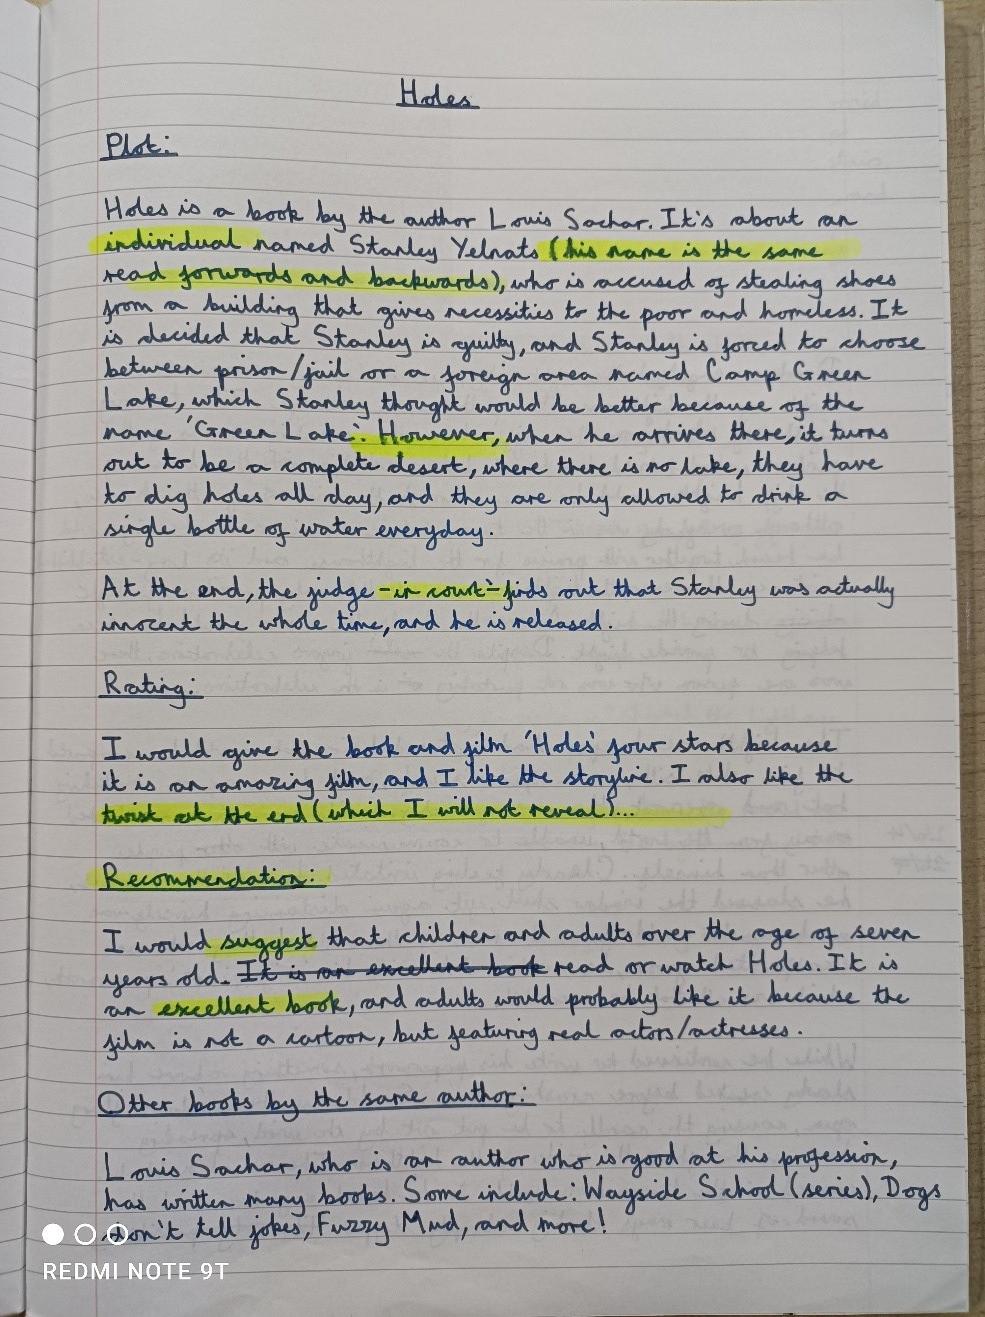 Holes
Plot:
Holes is a book by the author Louis Sachar. It's about an
individual named Stanley Yelnats (his name is the same
read forwards and backwards), who is accused of stealing shoes
from a building that gives necessities to the poor and homeless. It
is decided that Stanley is guilty, and Stanley is forced to choose
between prison/jail or a foreign area named Camp Green
Lake, which Stanley thought would be better because of the
name 'Green Lake'. However, when he arrives there, it turns
out to be a complete desert, where there is no lake, they have
to dig holes all day, and they are only allowed to drink a
single bottle of water everyday.
At the end, the judge -in court- finds out that Stanley was actually
innocent the whole time, and he is released.
Rating:
I would give the book and film 'Holes' four stars because
it is an amazing film, and I like the storyline. I also like the
twist at the end (which I will not reveal)...
Recommendation:
I would suggest that children and adults over the age of seven
years old. It is an excellent book read or watch Holes. It is
an excellent book, and adults would probably like it because the
film is not a cartoon, but featuring real actors/actresses.
Other books by the same author:
Louis Sachar, who is an author who is good at his profession,
has written many books. Some include: Wayside School (series), Dogs
don't tell jokes, Fuzzy Mud, and more!
REDMI NOTE 9T